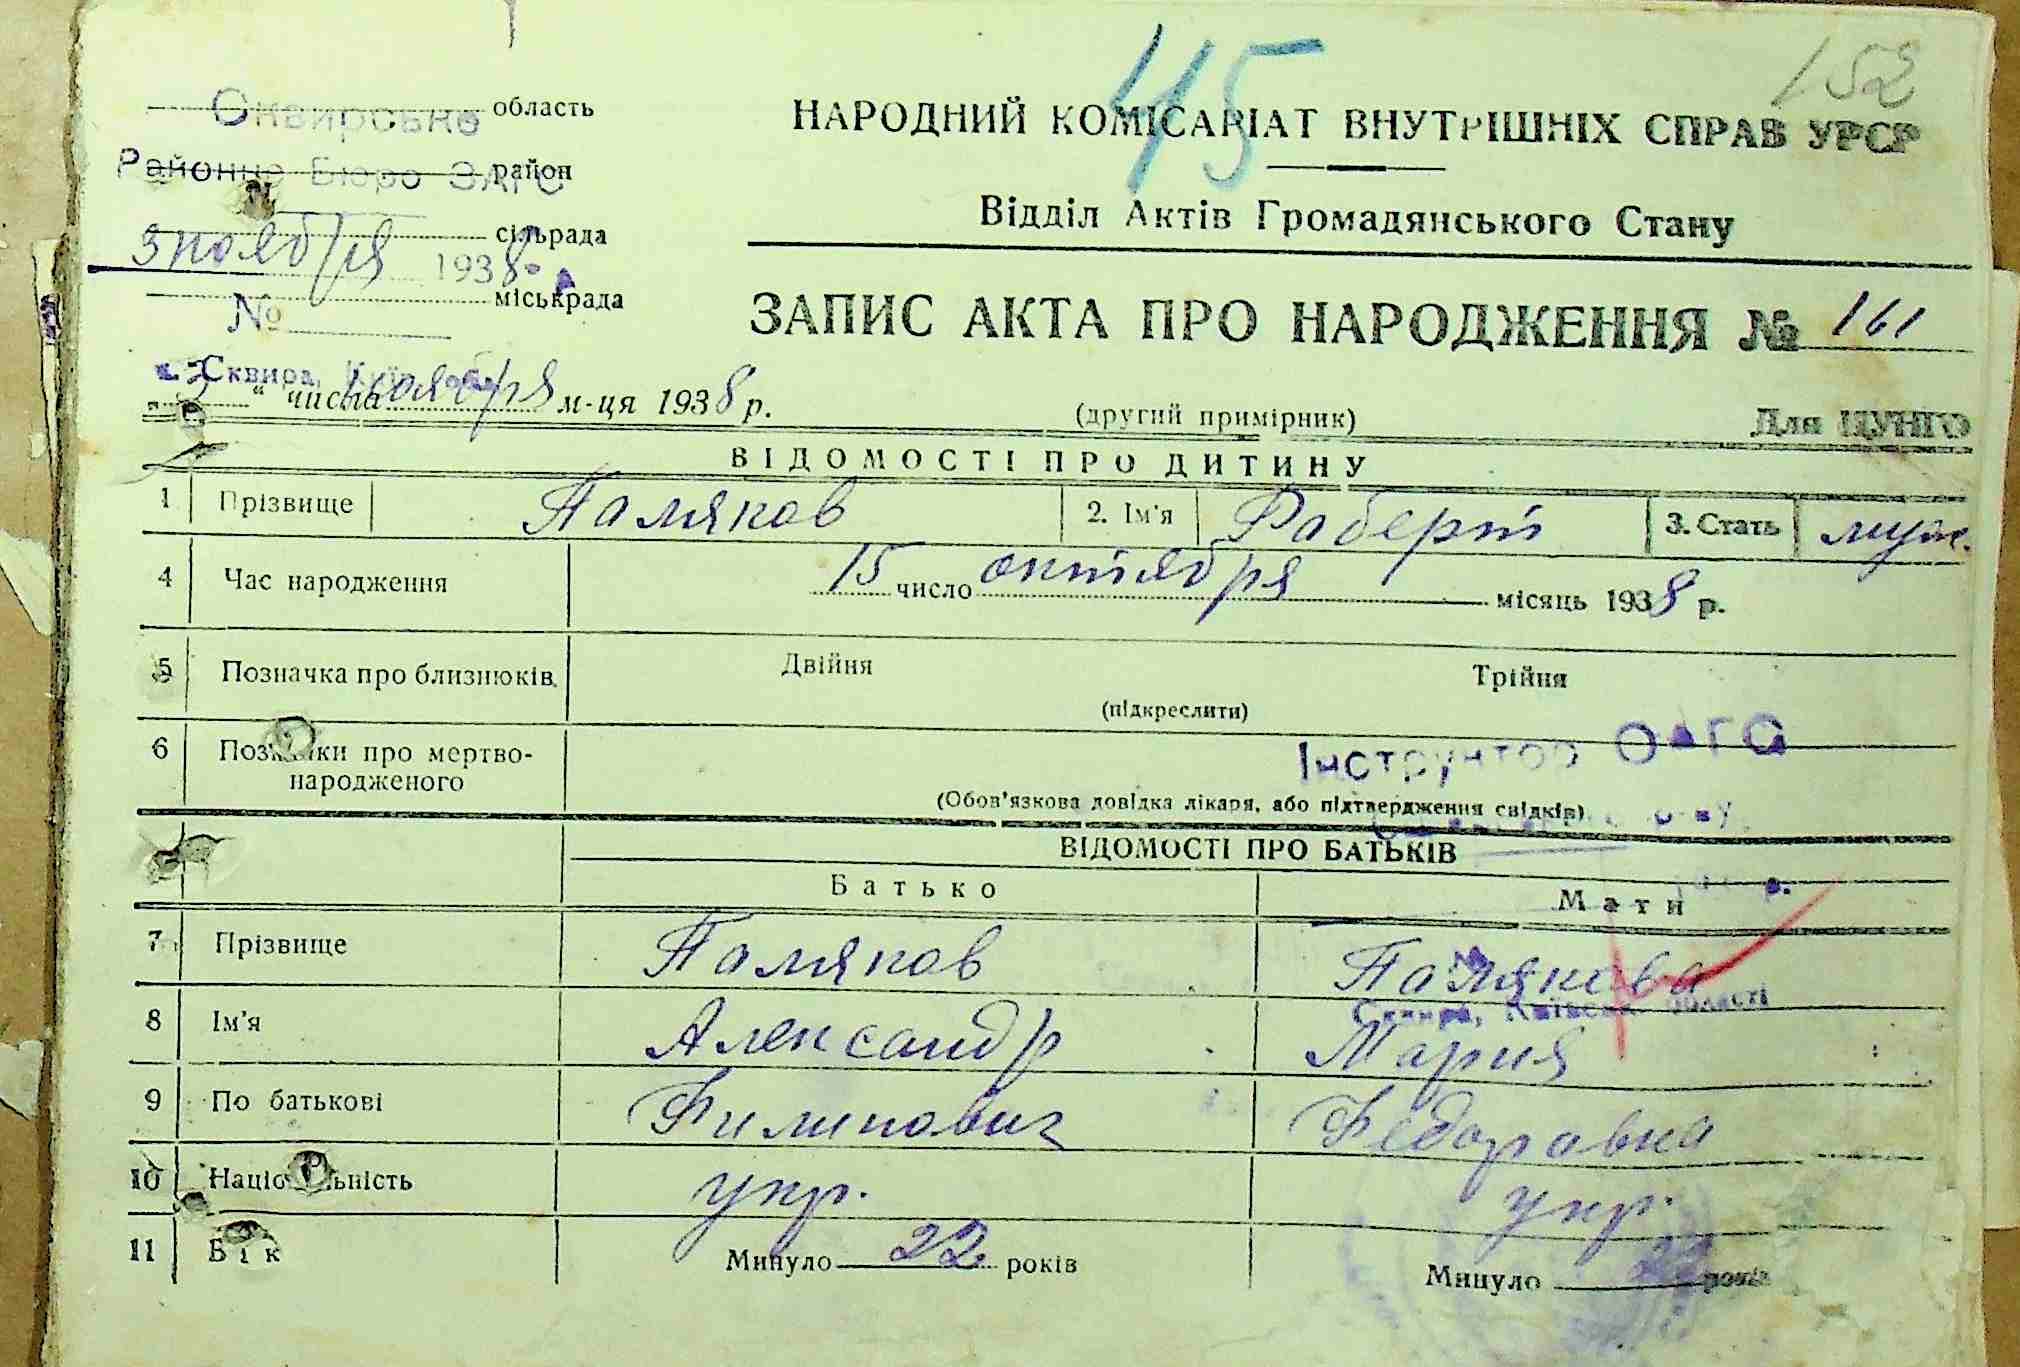 45
152
Сквирське область
Районне Бюро ЗАГС район
сільрада
3 ноября 1938 р.
міськрада
№
м. Сквира, Київ. обл.
НАРОДНИЙ КОМІСАРІАТ ВНУТРІШНІХ СПРАВ УРСР
Відділ Актів Громадянського Стану
ЗАПИС АКТА ПРО НАРОДЖЕННЯ № 161
"3" числа ноября м-ця 1938 р.
(другий примірник) Для ЦУНГО
ВІДОМОСТІ ПРО ДИТИНУ
1 Прізвище Паляков 2. Ім'я Раберт 3. Стать муж.
4 Час народження 15 число октября місяць 1938 р.
5 Позначка про близнюків Двійня Трійня
(підкреслити)
6 Позначки про мертво-
народженого
Інструктор ОАГС
(Обов'язкова довідка лікаря, або підтвердження свідків)
ВІДОМОСТІ ПРО БАТЬКІВ
Батько Мати
7 Прізвище Паляков Палякова
Сквира, Київської області
8 Ім'я Александр Мария
9 По батькові Филипович Федоравна
10 Національність укр. укр.
11 Вік Минуло 22 років Минуло 22 років